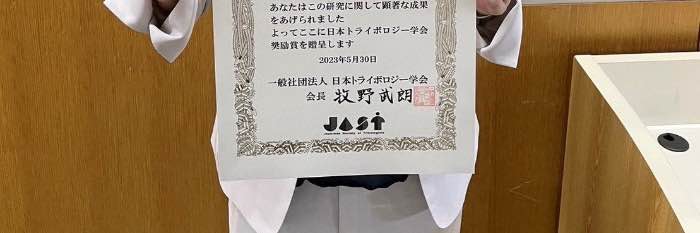 あなたはこの研究に関して顕著な成果
をあげられました
よってここに日本トライボロジー学会
奨励賞を贈呈します
2023年5月30日
一般社団法人 日本トライボロジー学会
会長 牧野武朗
JAST
Japanese Society of Tribologists